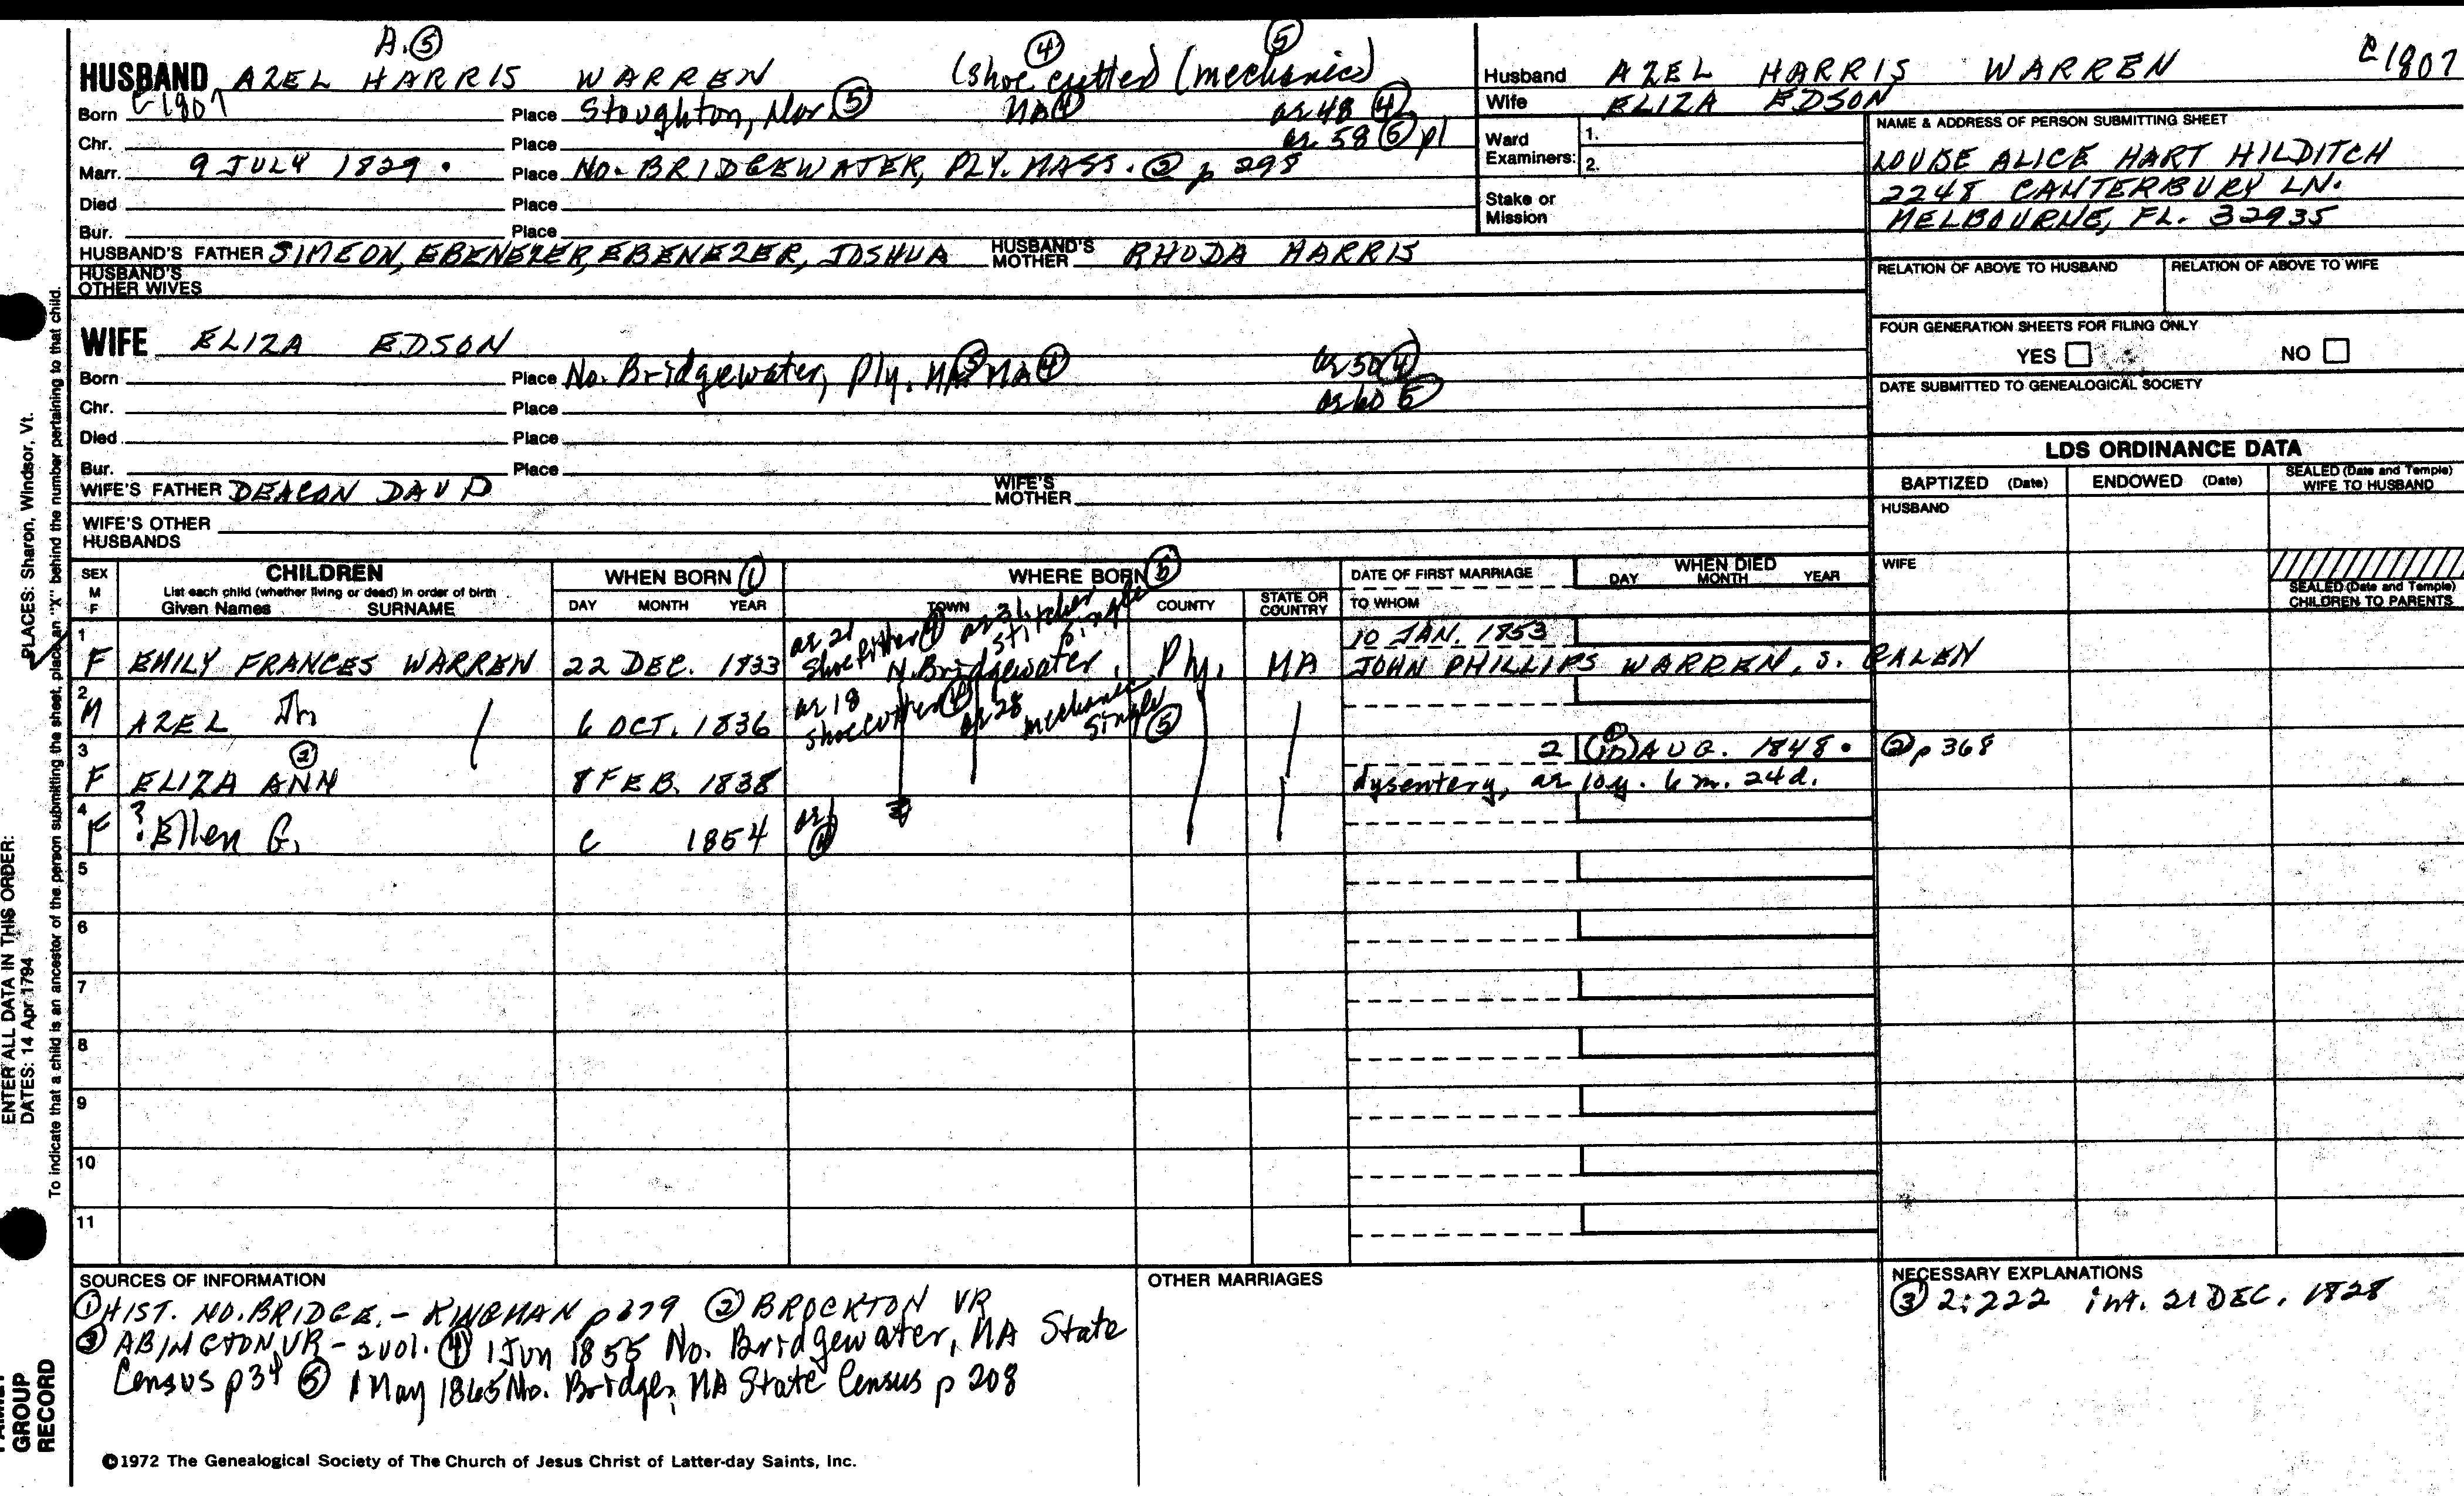 A. ⑤ ④ ⑤
HUSBAND AZEL HARRIS WARREN (shoe cutter) (mechanic)
Born c 1807 Place Stoughton, Nor. ⑤ MA ④ ae 48 ④
Chr. Place ae 58 ⑤ pl
Marr. 9 JULY 1829. Place NO. BRIDGEWATER, PLY. MASS. ② p 298
Died Place
Bur. Place
HUSBAND'S FATHER SIMEON, EBENEZER, EBENEZER, JOSHUA HUSBAND'S MOTHER RHODA HARRIS
HUSBAND'S OTHER WIVES
Husband AZEL HARRIS WARREN c 1807
Wife ELIZA EDSON
Ward Examiners: 1.
2.
Stake or Mission
NAME & ADDRESS OF PERSON SUBMITTING SHEET
LOUISE ALICE HART HILDITCH
2248 CANTERBURY LN.
MELBOURNE, FL. 32935
RELATION OF ABOVE TO HUSBAND RELATION OF ABOVE TO WIFE
FOUR GENERATION SHEETS FOR FILING ONLY
YES NO
DATE SUBMITTED TO GENEALOGICAL SOCIETY
WIFE ELIZA EDSON
Born Place No. Bridgewater, Ply. MA ⑤ MA ④ ae 50 ④
Chr. Place ae 60 ⑤
Died Place
Bur. Place
WIFE'S FATHER DEACON DAVID WIFE'S MOTHER
WIFE'S OTHER HUSBANDS
LDS ORDINANCE DATA
BAPTIZED (Date) ENDOWED (Date) SEALED (Date and Temple) WIFE TO HUSBAND
HUSBAND
WIFE
SEALED (Date and Temple) CHILDREN TO PARENTS
SEX M F CHILDREN
List each child (whether living or dead) in order of birth
Given Names SURNAME
WHEN BORN ①
DAY MONTH YEAR
WHERE BORN ⑤
TOWN COUNTY STATE OR COUNTRY
DATE OF FIRST MARRIAGE
TO WHOM
WHEN DIED
DAY MONTH YEAR
1 ae 21 ④ ae 31 stitcher single 10 JAN. 1853
F EMILY FRANCES WARREN 22 DEC. 1833 N. Bridgewater, Ply. MA JOHN PHILLIPS WARREN, S. GALEN
2
M AZEL Jr 6 OCT. 1836 ae 18 shoe cutter ④ ae 28 mechanic single ⑤
3 ② 2 (10) ① AUG. 1848. ② p 368
F ELIZA ANN 8 FEB. 1838 dysentery, ae 10y. 6 m. 24d.
4
F ? Ellen G. c 1854 ae 1 ④
5
6
7
8
9
10
11
SOURCES OF INFORMATION
① HIST. NO. BRIDGE. - KINGMAN p 679 ② BROCKTON VR
③ ABINGTON VR - 2 vol. ④ 1 Jun 1855 No. Bridgewater, MA State
Census p 34 ⑤ 1 May 1865 No. Bridge, MA State Census p 208
OTHER MARRIAGES
NECESSARY EXPLANATIONS
③ 2:222 int. 21 DEC. 1828
©1972 The Genealogical Society of The Church of Jesus Christ of Latter-day Saints, Inc.
ENTER ALL DATA IN THIS ORDER:
DATES: 14 Apr 1794 PLACES: Sharon, Windsor, Vt.
To indicate that a child is an ancestor of the person submitting the sheet, place an "X" behind the number pertaining to that child.
FAMILY
GROUP
RECORD